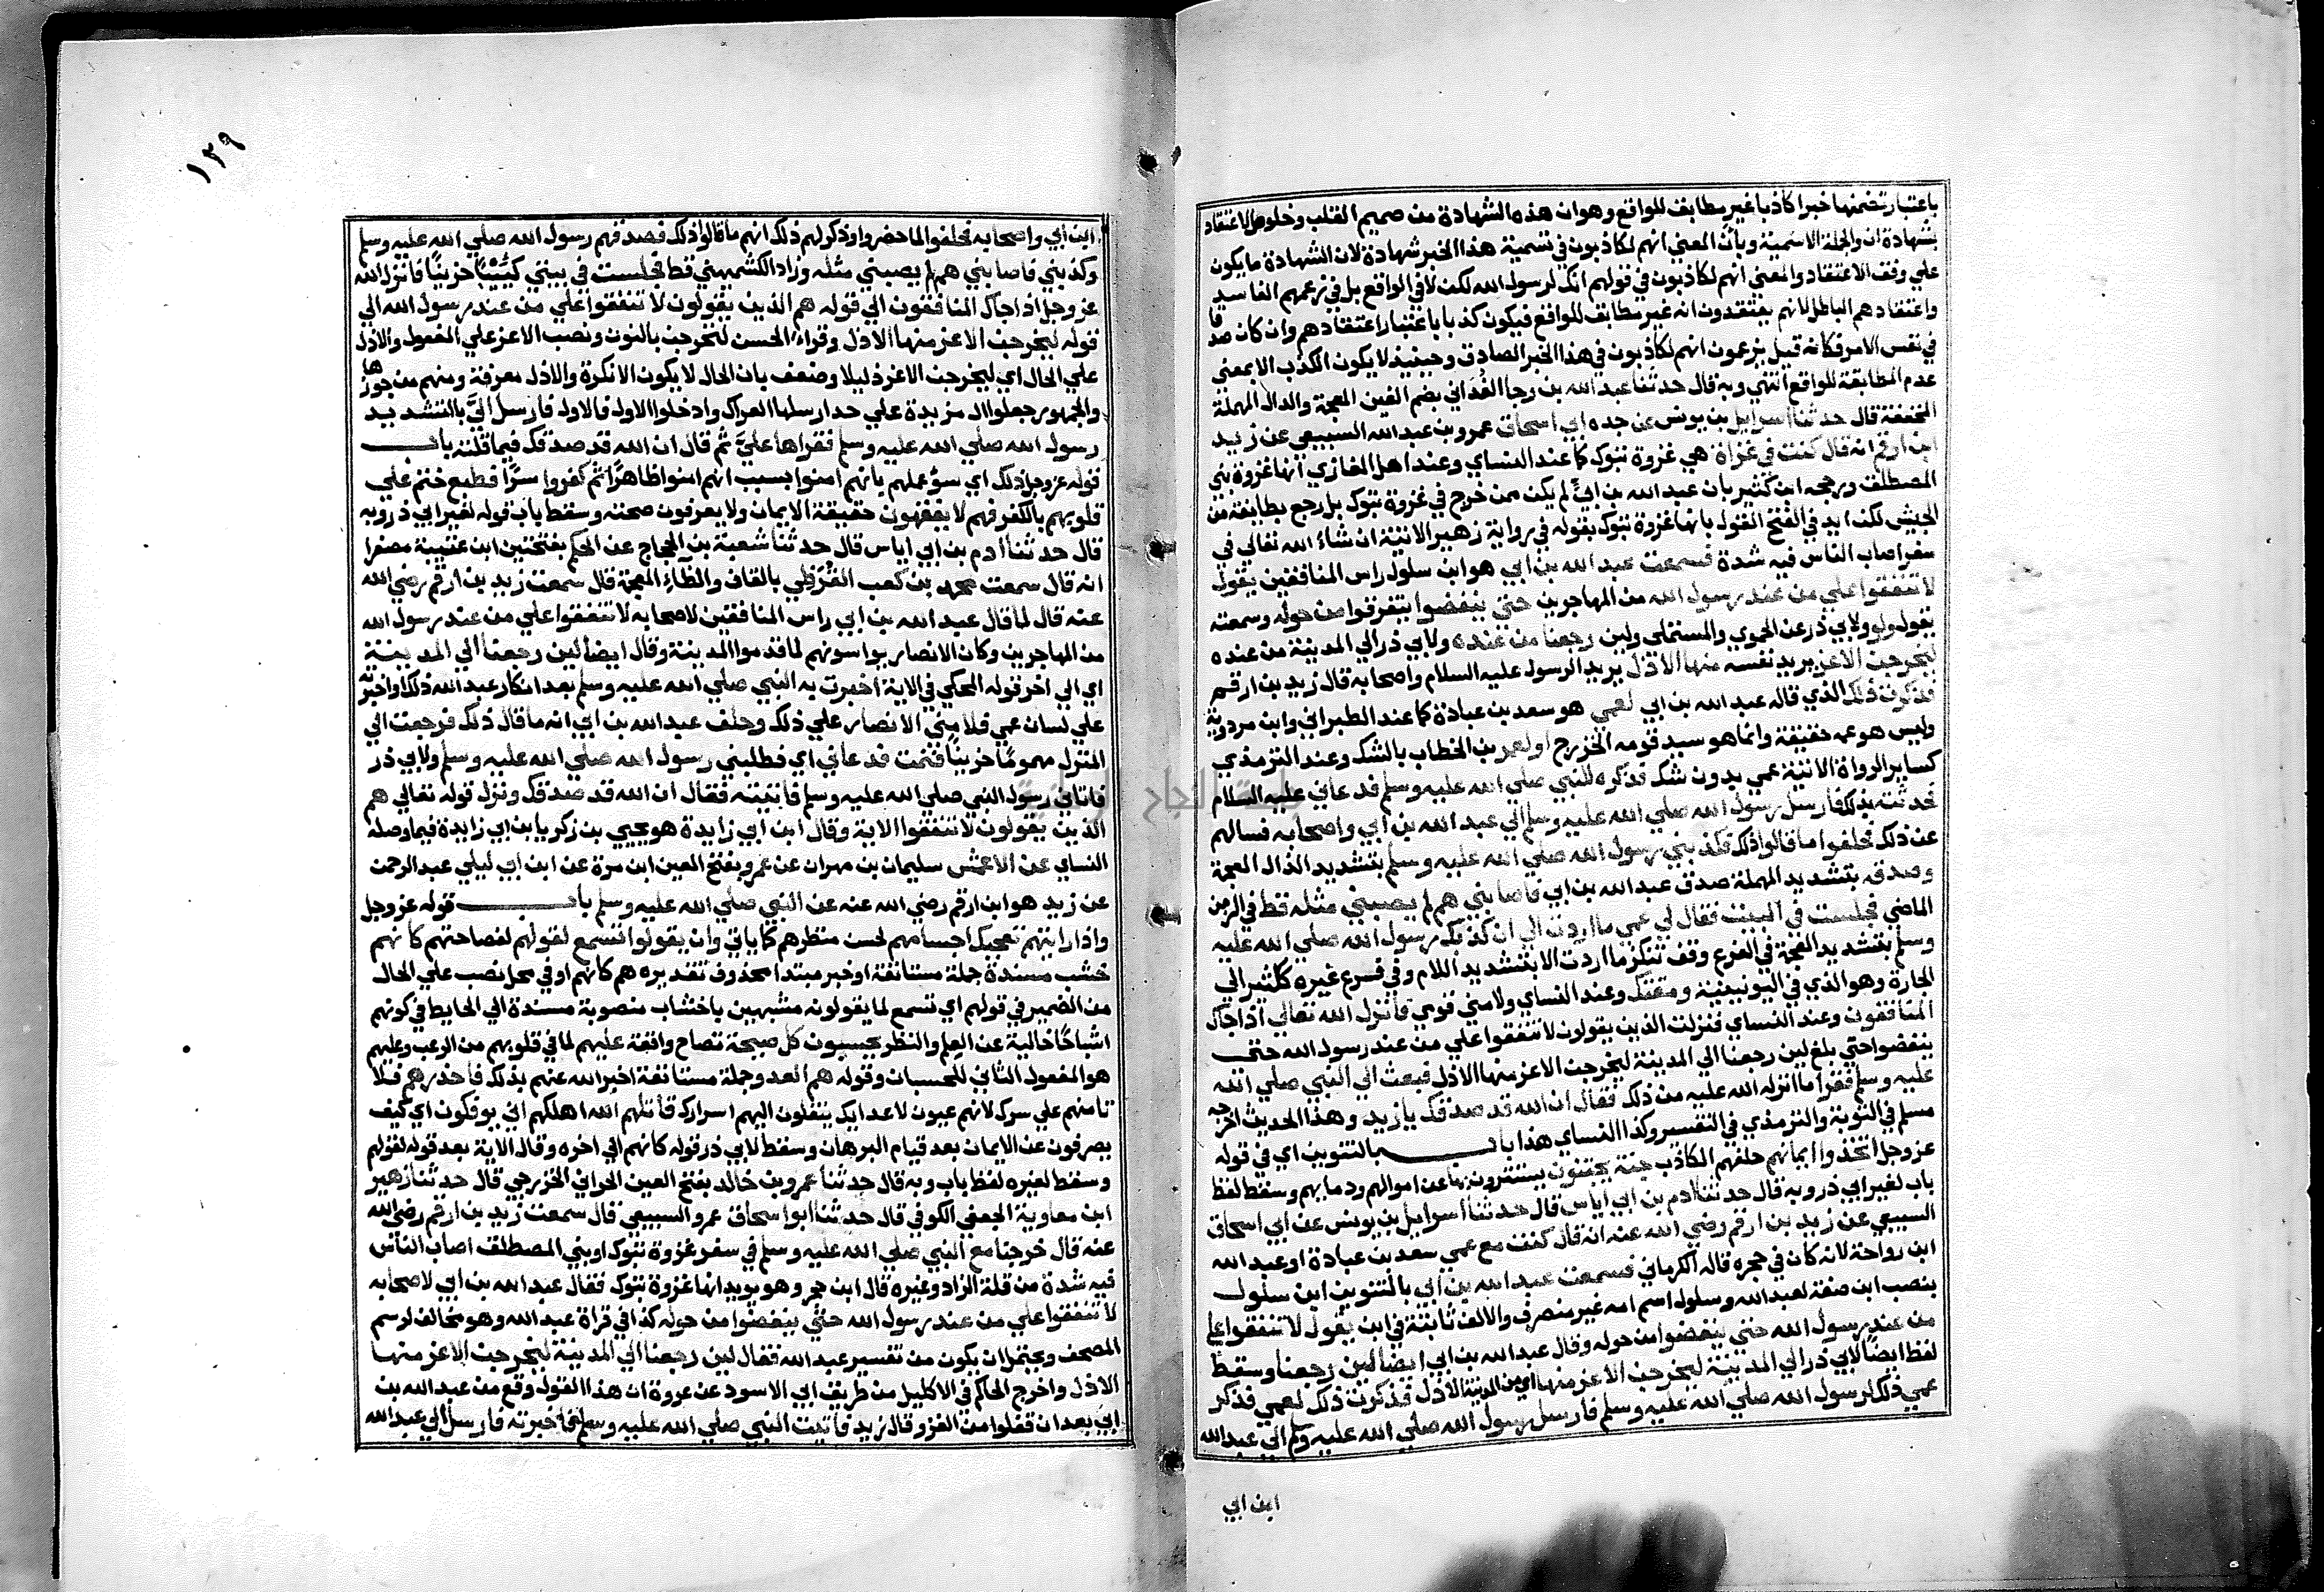 باعتبار تضمنها خبرا كاذبا غير مطابق للواقع وهو ان هذه الشهادة من صميم القلب وخلوص الاعتقاد
بشهادة ان والجملة الاسمية وبان المعني انهم لكاذبون في تسمية هذا الخبر شهادة لان الشهادة ما يكون
علي وفق الاعتقاد والمعني انهم لكاذبون في قولهم انك لرسول الله لكن لا في الواقع بل في زعمهم الفاسد
واعتقادهم الباطل لانهم يعتقدون انه غير مطابق للواقع فيكون كذبا باعتبار اعتقادهم وان كان صدقا
في نفس الامر فكانه قيل يزعمون انهم لكاذبون في هذا الخبر الصادق وحينيذ لا يكون الكذب الا بمعني
عدم المطابقة للواقع انتهي وبه قال حدثنا عبد الله بن رجا الغداني بضم الغين المعجمة والدال المهملة
المخففة قال حدثنا اسرايل بن يونس عن جده ابي اسحاق عمرو بن عبد الله السبيعي عن زيد
ابن ارقم انه قال كنت في غزاة هي غزوة تبوك كما عند النساي وعند اهل المغازي انها غزوة بني
المصطلق ورجحه ابن كثير بان عبد الله بن ابي لم يكن ممن خرج في غزوة تبوك بل رجع بطايفة من
الجيش لكن ايد في الفتح القول بانها غزوة تبوك بقوله في رواية زهير الاتية ان شاء الله تعالي في
سفر اصاب الناس فيه شدة فسمعت عبد الله بن ابي هو ابن سلول راس المنافقين يقول
لا تنفقوا علي من عند رسول الله من المهاجرين حتي ينفضوا يتفرقوا من حوله وسمعته
يقول ولو ولابي ذر عن الحموي والمستملي ولين رجعنا من عنده ولابي ذر الي المدينة من عنده
ليخرجن الاعز يريد نفسه منها الاذل يريد الرسول عليه السلام واصحابه قال زيد بن ارقم
فذكرت ذلك الذي قاله عبد الله بن ابي لعمي هو سعد بن عبادة كما عند الطبراني وابن مردويه
وليس هو عمه حقيقة وانما هو سيد قومه الخزرج او لعمر بن الخطاب بالشك وعند الترمذي
كساير الرواة الاتية عمي بدون شك فذكره للنبي صلي الله عليه وسلم فدعاني عليه السلام
فحدثته بذلك فارسل رسول الله صلي الله عليه وسلم الي عبد الله بن ابي واصحابه فسالهم
عن ذلك فحلفوا ما قالوا ذلك فكذبني رسول الله صلي الله عليه وسلم بتشديد الذال المعجمة
وصدقه بتشديد المهملة صدق عبد الله بن ابي فاصابني هم لم يصبني مثله قط في الزمن
الماضي فجلست في البيت فقال لي عمي ما اردت الي ان كذبك رسول الله صلي الله عليه
وسلم بتشديد المعجمة في الفرع وقف تنكز ما اردت الا بتشديد اللام وفي فرع غيره كلثير الي
الجارة وهو الذي في اليونينية ومقتك وعند النساي ولامني قومي فانزل الله تعالي اذا جاك
المنافقون وعند النساي فنزلت الذين يقولون لا تنفقوا علي من عند رسول الله حتي
ينفضوا حتي بلغ لين رجعنا الي المدينة ليخرجن الاعز منها الاذل فبعث الي النبي صلي الله
عليه وسلم فقرا ما انزله الله عليه من ذلك فقال ان الله قد صدقك يا زيد وهذا الحديث اخرجه
مسلم في التوبة والترمذي في التفسير وكذا النساي هذا باب بالتنوين اي في قوله
عز وجل اتخذوا ايمانهم حلفهم الكاذب جنة يجتنون يستترون بها عن اموالهم ودمايهم وسقط لفظ
باب لغير ابي ذر وبه قال حدثنا ادم بن ابي اياس قال حدثنا اسرايل بن يونس عن ابي اسحاق
السبيعي عن زيد بن ارقم رضي الله عنه انه قال كنت مع عمي سعد بن عبادة او عبد الله
ابن رواحة لانه كان في حجره قاله الكرماني فسمعت عبد الله بن ابي بالتنوين ابن سلول
بنصب ابن صفة لعبد الله وسلول اسم امه غير منصرف والالف ثابتة في ابن يقول لا تنفقوا علي
من عند رسول الله حتي ينفضوا من حوله وقال عبد الله بن ابي ايضا لين رجعنا وسقط
لفظ ايضا لابي ذر الي المدينة ليخرجن الاعز منها اي من المدينة الاذل فذكرت ذلك لعمي فذكر
عمي ذلك لرسول الله صلي الله عليه وسلم فارسل رسول الله صلي الله عليه وسلم الي عبد الله
ابن ابي
١٣٩
ابن ابي واصحابه فحلفوا لما حضروا وذكر لهم ذلك انهم ما قالوا ذلك فصدقهم رسول الله صلي الله عليه وسلم
وكذبني فاصابني هم لم يصبني مثله وزاد الكشميهني قط فجلست في بيتي كئيبا حزينا فانزل الله
عز وجل اذا جاك المنافقون الي قوله هم الذين يقولون لا تنفقوا علي من عند رسول الله الي
قوله ليخرجن الاعز منها الاذل وقراء الحسن لنخرجن بالنون ونصب الاعز علي المفعول والاذل
علي الحال اي ليخرجن الاعز ذليلا وضعف بان الحال لا يكون الا نكرة والاذل معرفة ومنهم من جوزها
والجمهور جعلوا ال مزيدة علي حد ارسلها العراك وادخلوا الاول فالاول فارسل الي بالتشديد
رسول الله صلي الله عليه وسلم فقراها علي ثم قال ان الله قد صدقك فيما قلته باب
قوله عز وجل ذلك اي سوء عملهم بانهم امنوا بسبب انهم امنوا ظاهرا ثم كفروا سرا فطبع ختم علي
قلوبهم بالكفر فهم لا يفقهون حقيقة الايمان ولا يعرفون صحته وسقط باب قوله لغير ابي ذر وبه
قال حدثنا ادم بن ابي اياس قال حدثنا شعبة بن الحجاج عن الحكم بفتحتين ابن عتيبة مصغرا
انه قال سمعت محمد بن كعب القرظي بالقاف والظاء المعجمة قال سمعت زيد بن ارقم رضي الله
عنه قال لما قال عبد الله بن ابي راس المنافقين لاصحابه لا تنفقوا علي من عند رسول الله
من المهاجرين وكان الانصار يواسونهم لما قدموا المدينة وقال ايضا لين رجعنا الي المدينة
اي الي اخر قوله المحكي في الاية اخبرت به النبي صلي الله عليه وسلم بعد انكار عبد الله ذلك او اخبرته
علي لسان عمي فلامني الانصار علي ذلك وحلف عبد الله بن ابي انه ما قال ذلك فرجعت الي
المنزل مهموما حزينا فنمت فدعاني اي فطلبني رسول الله صلي الله عليه وسلم ولابي ذر
فاتاني رسول النبي صلي الله عليه وسلم فاتيته فقال ان الله قد صدقك ونزل قوله تعالي هم
الذين يقولون لا تنفقوا الاية وقال ابن ابي زايدة هو يحيي بن زكريا بن ابي زايدة فيما وصله
النساي عن الاعمش سليمان بن مهران عن عمرو بفتح العين ابن مرة عن ابن ابي ليلي عبد الرحمن
عن زيد هو ابن ارقم رضي الله عنه عن النبي صلي الله عليه وسلم باب قوله عز وجل
واذا رايتهم تعجبك اجسامهم لحسن منظرهم كما ياتي وان يقولوا تسمع لقولهم لفصاحتهم كانهم
خشب مسندة جملة مستانفة او خبر مبتدا محذوف تقديره هم كانهم او في محل نصب علي الحال
من الضمير في قولهم اي تسمع لما يقولونه مشبهين باخشاب منصوبة مسندة الي الحايط في كونهم
اشباحا خالية عن العلم والنظر يحسبون كل صيحة تصاح واقعة عليهم لما في قلوبهم من الرعب وعليهم
هو المفعول الثاني للحسبان وقوله هم العدو جملة مستانفة اخبر الله عنهم بذلك فاحذرهم فلا
تامنهم علي سرك لانهم عيون لاعدايك ينقلون اليهم اسرارك قاتلهم الله اهلكهم اني يوفكون اي كيف
يصرفون عن الايمان بعد قيام البرهان وسقط لابي ذر قوله كانهم الي اخره وقال الاية بعد قوله لقولهم
وسقط لغيره لفظ باب وبه قال حدثنا عمرو بن خالد بفتح العين الحراني الخزرجي قال حدثنا زهير
ابن معاوية الجعفي الكوفي قال حدثنا ابو اسحاق عمرو السبيعي قال سمعت زيد بن ارقم رضي الله
عنه قال خرجنا مع النبي صلي الله عليه وسلم في سفر غزوة تبوك او بني المصطلق اصاب الناس
فيه شدة من قلة الزاد وغيره قال ابن حجر وهو يويد انها غزوة تبوك فقال عبد الله بن ابي لاصحابه
لا تنفقوا علي من عند رسول الله حتي ينفضوا من حوله كذا في قراة عبد الله وهو مخالف لرسم
المصحف ويحتمل ان يكون من تفسير عبد الله فقال لين رجعنا الي المدينة ليخرجن الاعز منها
الاذل واخرج الحاكم في الاكليل من طريق ابي الاسود عن عروة ان هذا القول وقع من عبد الله بن
ابي بعد ان قفلوا من الغزو قال زيد فاتيت النبي صلي الله عليه وسلم فاخبرته فارسل الي عبد الله